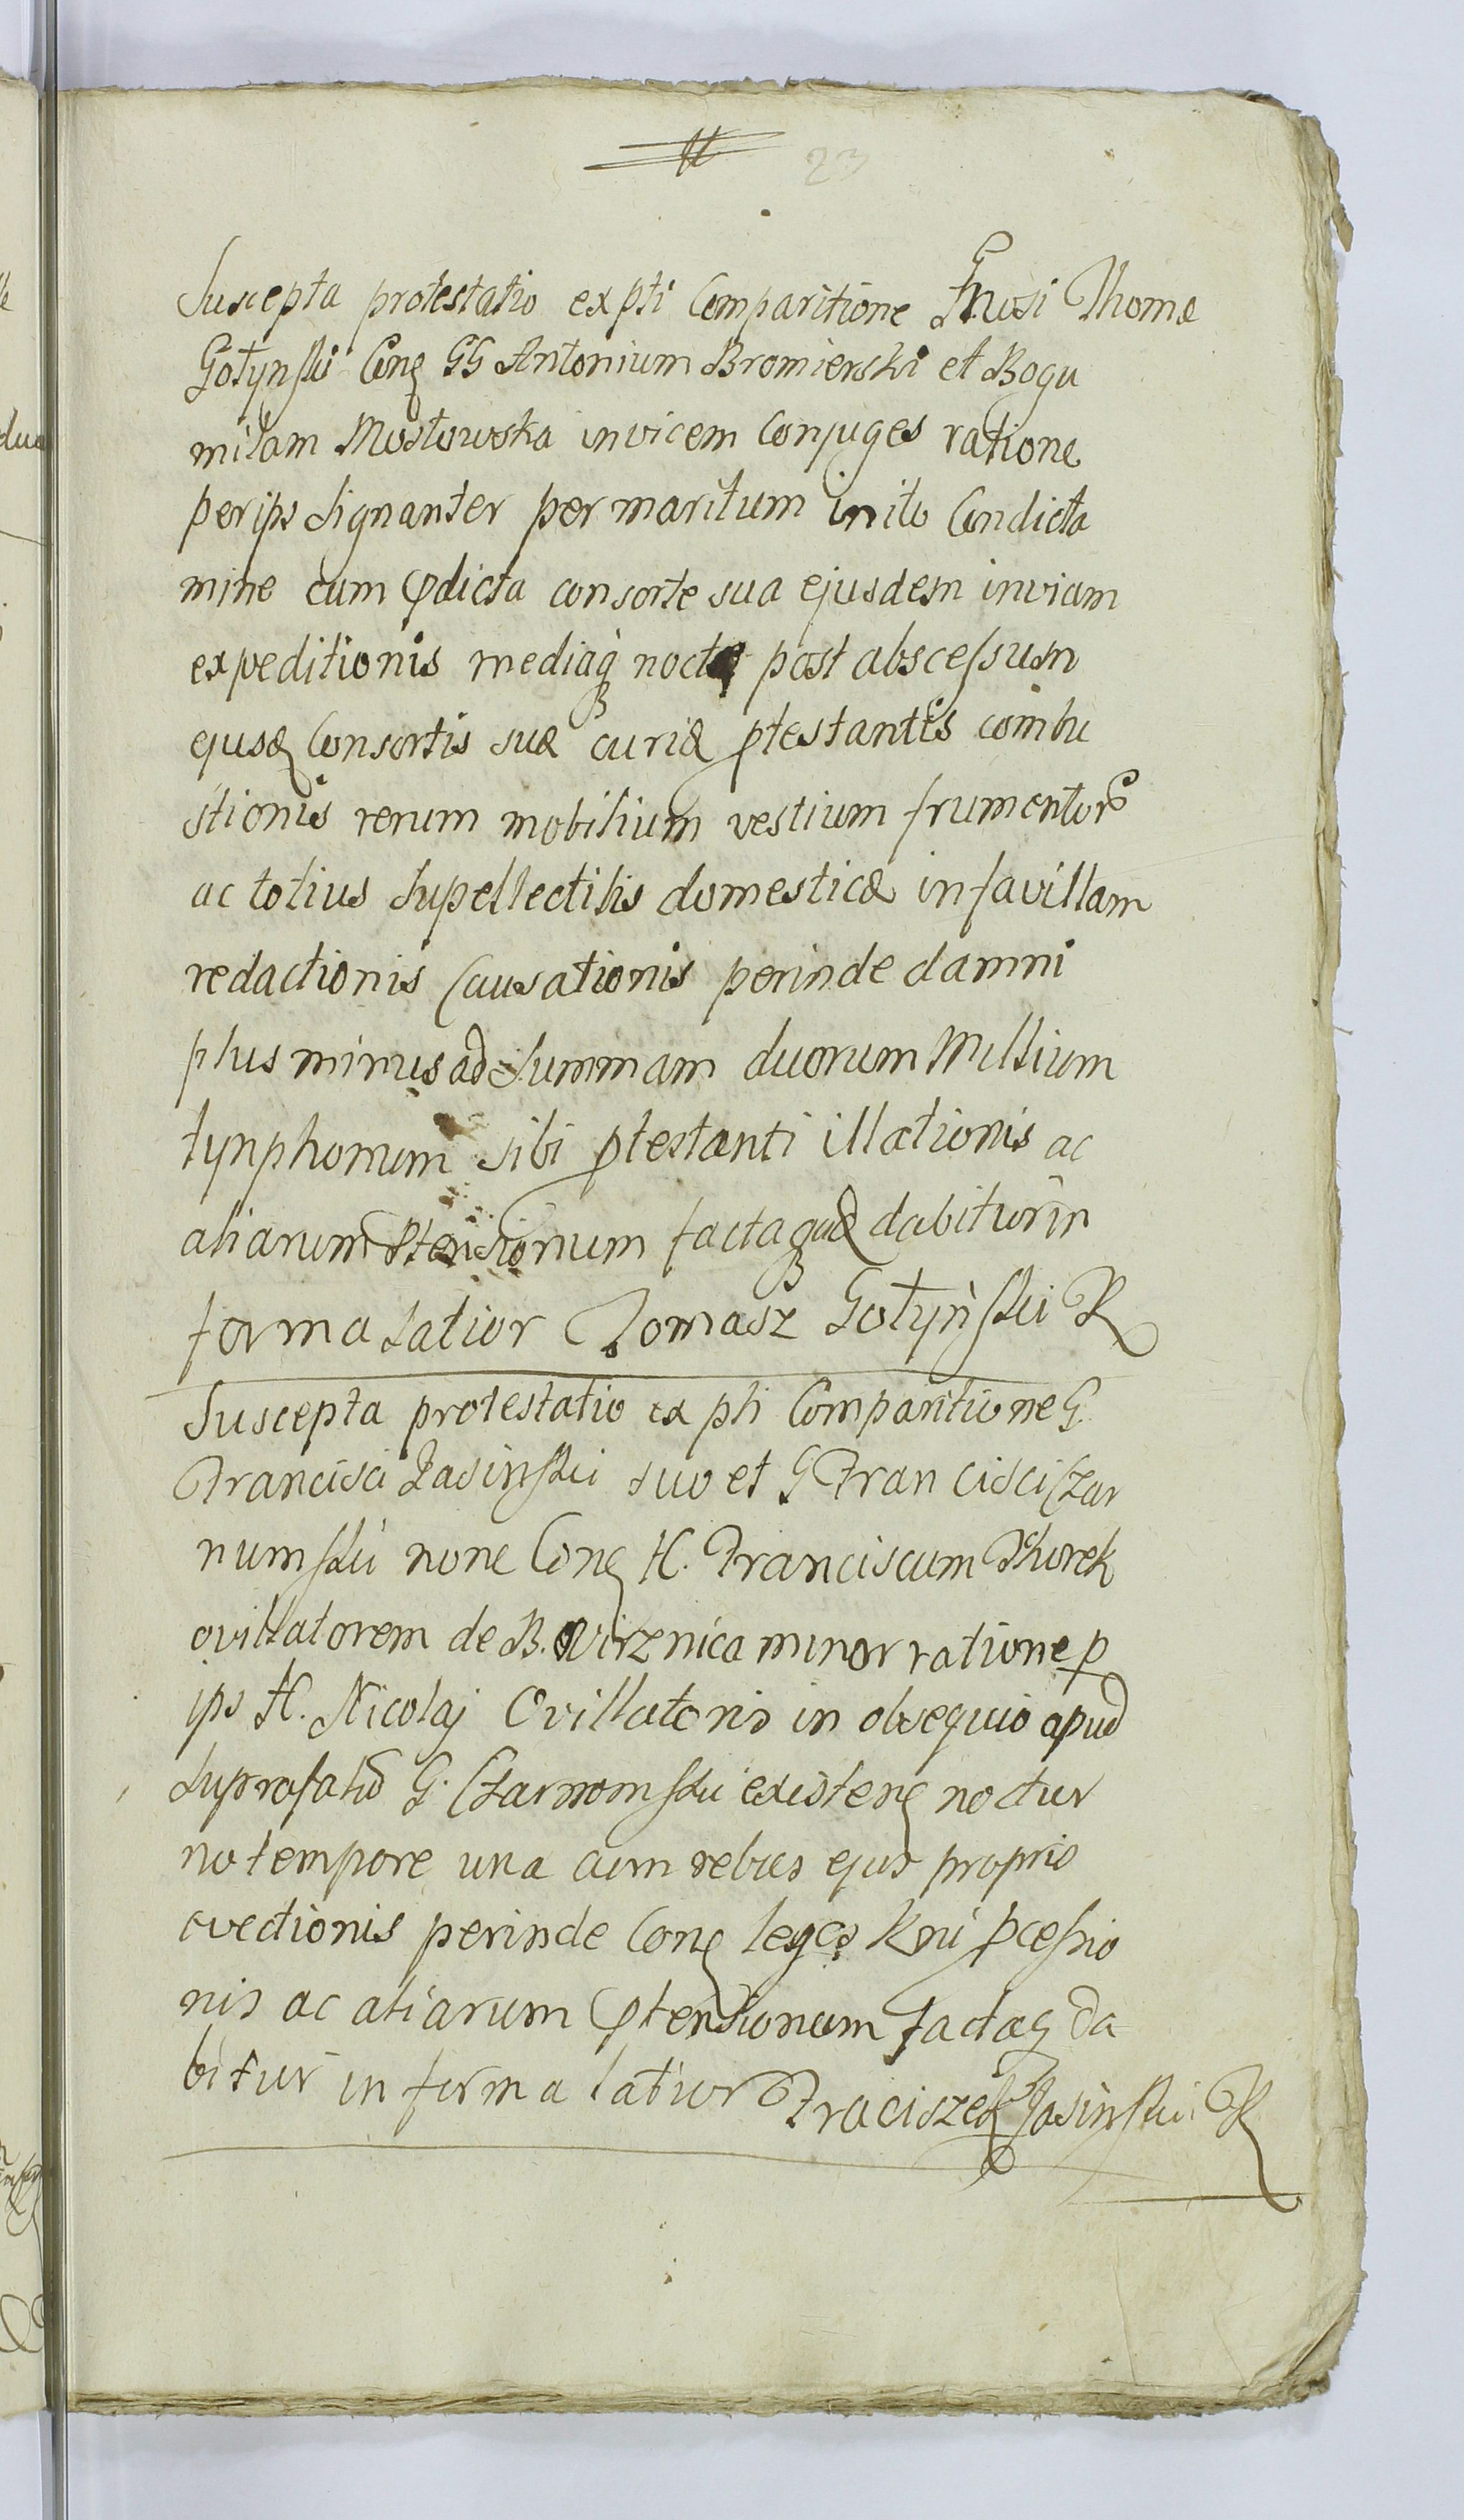 23
Suscepta protestatio ex pti Comparitione Gnrosi Thomæ
Gołynski Conq GG Antonium Bromierski et Bogu
miłam Mostowska invicem Conjuges ratione
per ips signanter per maritum inito Condicta
mine cum pdicta consorte sua ejusdem inviam
expeditionis mediaq nocte post abscessum
ejusq Consortis suæ curiæ ptestantis combu
stionis rerum mobilium vestium frumentor
ac totius supellectilis domesticæ in favillam
redactionis Causationis perinde damni
plus minus ad summam duorum Millium
tynphorum sibi ptestanti illationis ac
aliarum ptensionum facta quæ dabitur in
forma latior Tomasz Gołyński R
Suscepta protestatio ex pti Comparitione G
Francisci Jasinski suo et G Francisci Czar
numski none Conq H. Franciscum Thorek
ovillatorem de B. Wirznica minor ratione p
ips H. Nicolaj Ovillatoris in obsequio apud
suprafatu G. Czarnomski existenq noctur
no tempore una cum rebus ejus proprio
evectionis perinde Conq leges Rni pcessio
nis ac aliarum ptensionum factaq da
bitur in forma latior Fraciszek Jasinski R